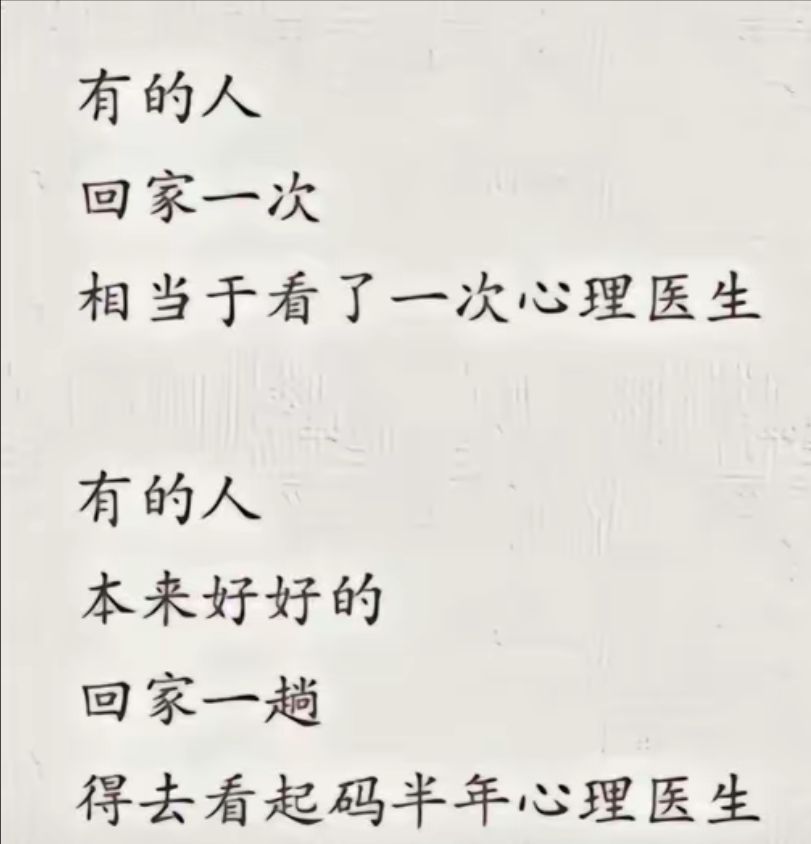 有的人
回家一次
相当于看了一次心理医生
有的人
本来好好的
回家一趟
得去看起码半年心理医生